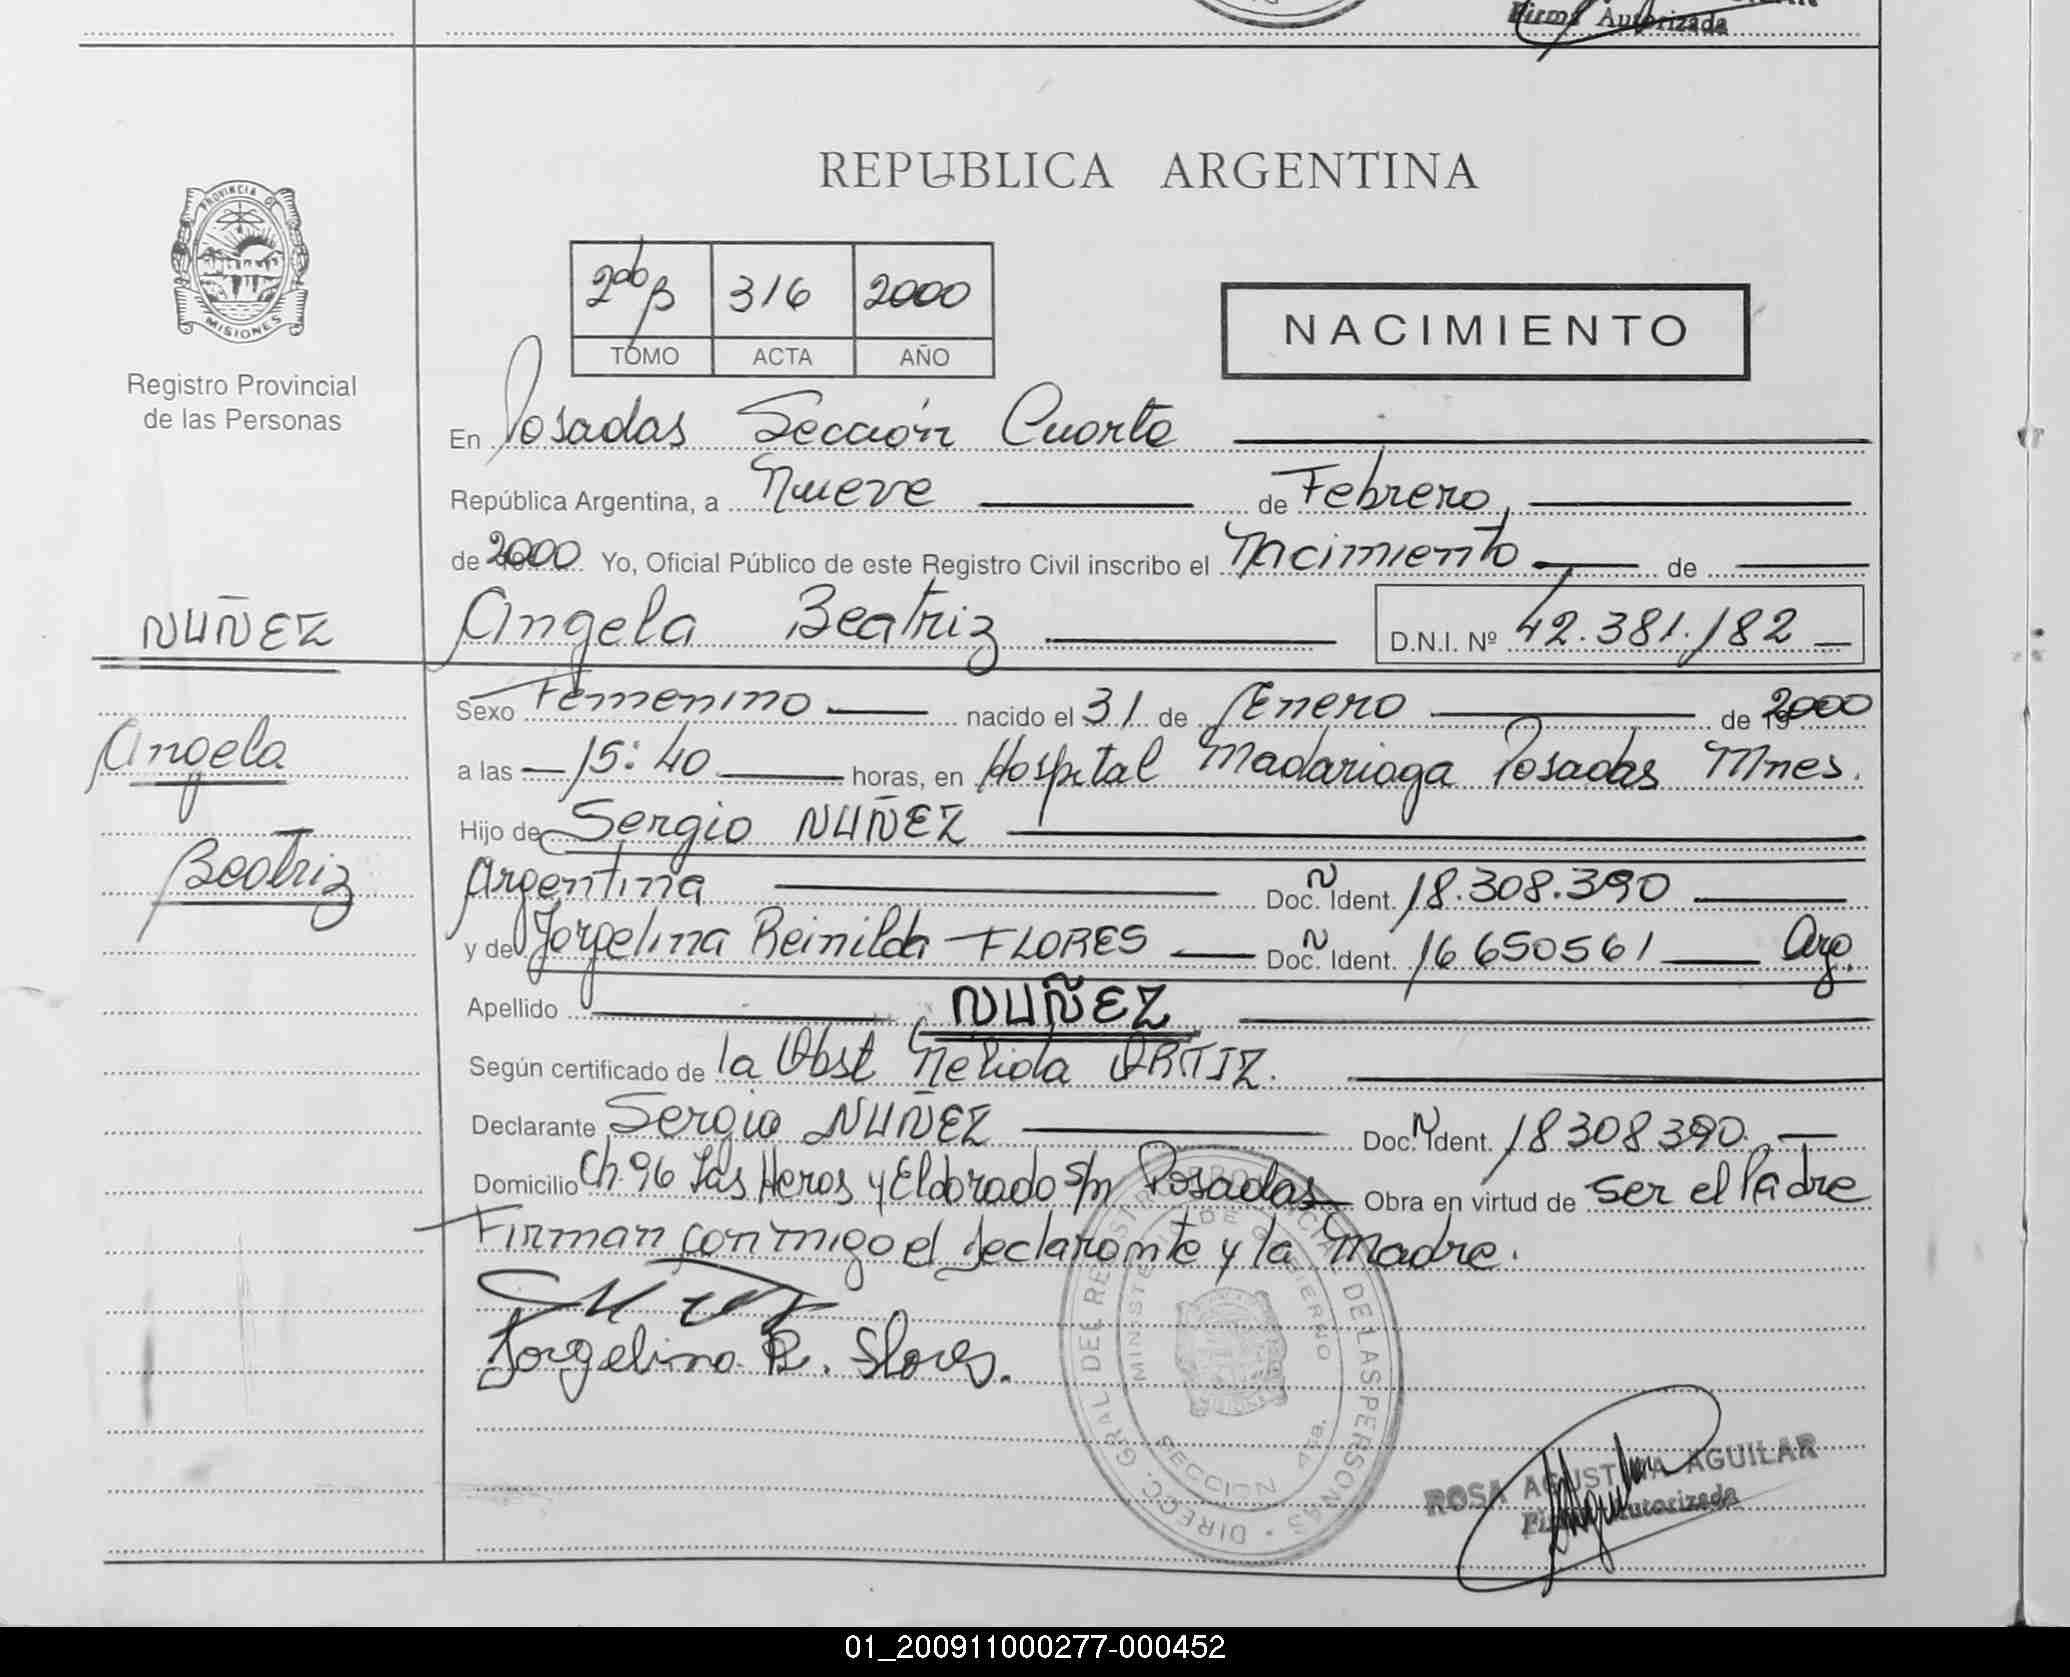 Firma Autorizada
REPUBLICA ARGENTINA
PROVINCIA DE
MISIONES
Registro Provincial
de las Personas
2do B 316 2000
TOMO ACTA AÑO
NACIMIENTO
En Posadas Sección Cuarta
República Argentina, a Nueve de Febrero,
de 2000 Yo, Oficial Público de este Registro Civil inscribo el Nacimiento de
NUÑEZ
Angela Beatriz D.N.I. Nº 42.381.182
Sexo Femenino nacido el 31 de Enero de 2000
Angela
a las 15:40 horas, en Hospital Madariaga Posadas Mnes.
Hijo de Sergio NUÑEZ
Beatriz
Argentina Doc. N Ident. 18.308.390
y de Jorgelina Reinilda FLORES Doc. N Ident. 16 650561 Arg.
Apellido NUÑEZ
Según certificado de la Obst Nelida ORTIZ.
Declarante Sergio NUÑEZ Doc. N Ident. 18308390.
Domicilio Ch. 96 Las Heros y Eldorado s/n Posadas Obra en virtud de ser el Padre
Firman conmigo el declarante y la Madre.
Jorgelina R. Flores.
DIRECC. GRAL DEL REGISTRO PROVINCIAL DE LAS PERSONAS
MINISTERIO DE GOBIERNO
SECCION 4ta.
ROSA AGUSTINA AGUILAR
Firma Autorizada
01_200911000277-000452